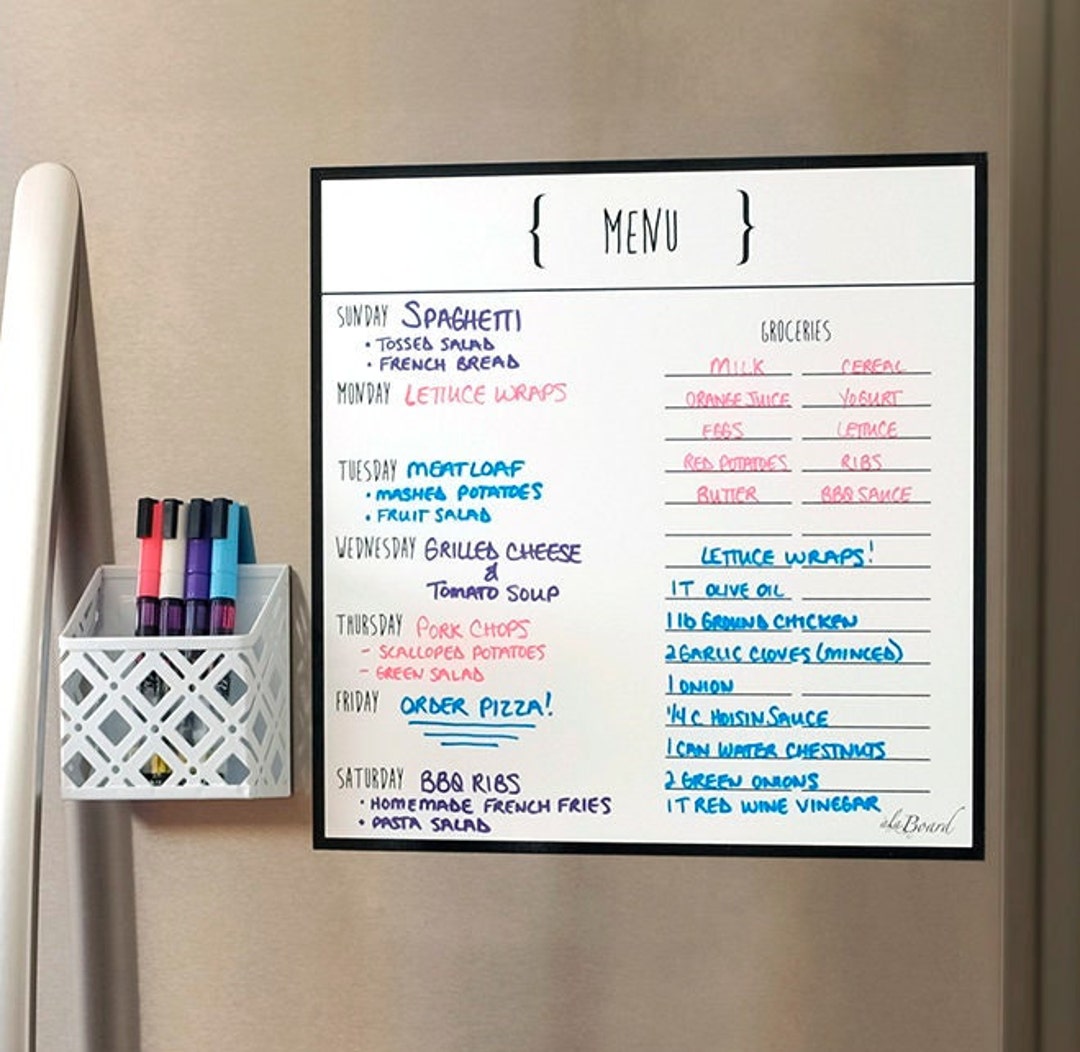 { MENU }
SUNDAY SPAGHETTI
• TOSSED SALAD
• FRENCH BREAD
MONDAY LETTUCE WRAPS
TUESDAY MEATLOAF
• MASHED POTATOES
• FRUIT SALAD
WEDNESDAY GRILLED CHEESE
&
TOMATO SOUP
THURSDAY PORK CHOPS
- SCALLOPED POTATOES
- GREEN SALAD
FRIDAY ORDER PIZZA!
SATURDAY BBQ RIBS
• HOMEMADE FRENCH FRIES
• PASTA SALAD
GROCERIES
MILK CEREAL
ORANGE JUICE YOGURT
EGGS LETTUCE
RED POTATOES RIBS
BUTTER BBQ SAUCE
LETTUCE WRAPS!
1T OLIVE OIL
1 lb GROUND CHICKEN
2 GARLIC CLOVES (MINCED)
1 ONION
1/4 C HOISIN SAUCE
1 CAN WATER CHESTNUTS
2 GREEN ONIONS
1T RED WINE VINEGAR
ala Board